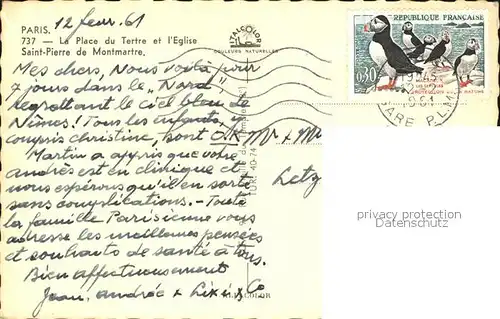 12 fevr. 61
PARIS.
737 — La Place du Tertre et l'Eglise
Saint-Pierre de Montmartre.
ITALCOLOR
COULEURS NATURELLES
REPUBLIQUE FRANÇAISE
0,30
1961
GARE P.L.M
Mes chers, Nous voilà pour
7 jours dans le „Nord",
regrettant le ciel bleu de
Nîmes! Tous les enfants, y
compris Christine, sont OK
Martin a appris que votre
Andrés est en clinique et
nous espérons qu'il en sorte
sans complications. - Toute
la famille Parisienne vous
adresse les meilleures pensées
et souhaits de santé à tous.
Bien affectueusement
Jean, Andrée + Liki & Co
Mr + Me
Letz
ITALCOLOR
privacy protection
Datenschutz